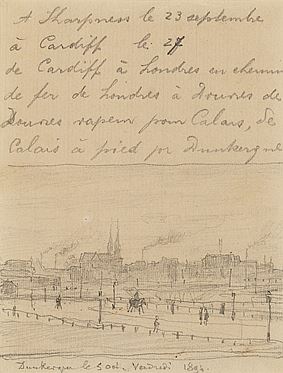 A Sharpness le 23 septembre
à Cardiff le 27
de Cardiff à Londres en chemin
de fer de Londres à Douvres de
Douvres vapeur pour Calais, de
Calais à pied pr Dunkerque
Dunkerque le 5 oct. Vendredi